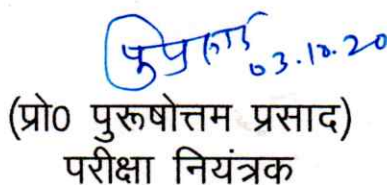 03.10.20
(प्रो0 पुरूषोत्तम प्रसाद)
परीक्षा नियंत्रक